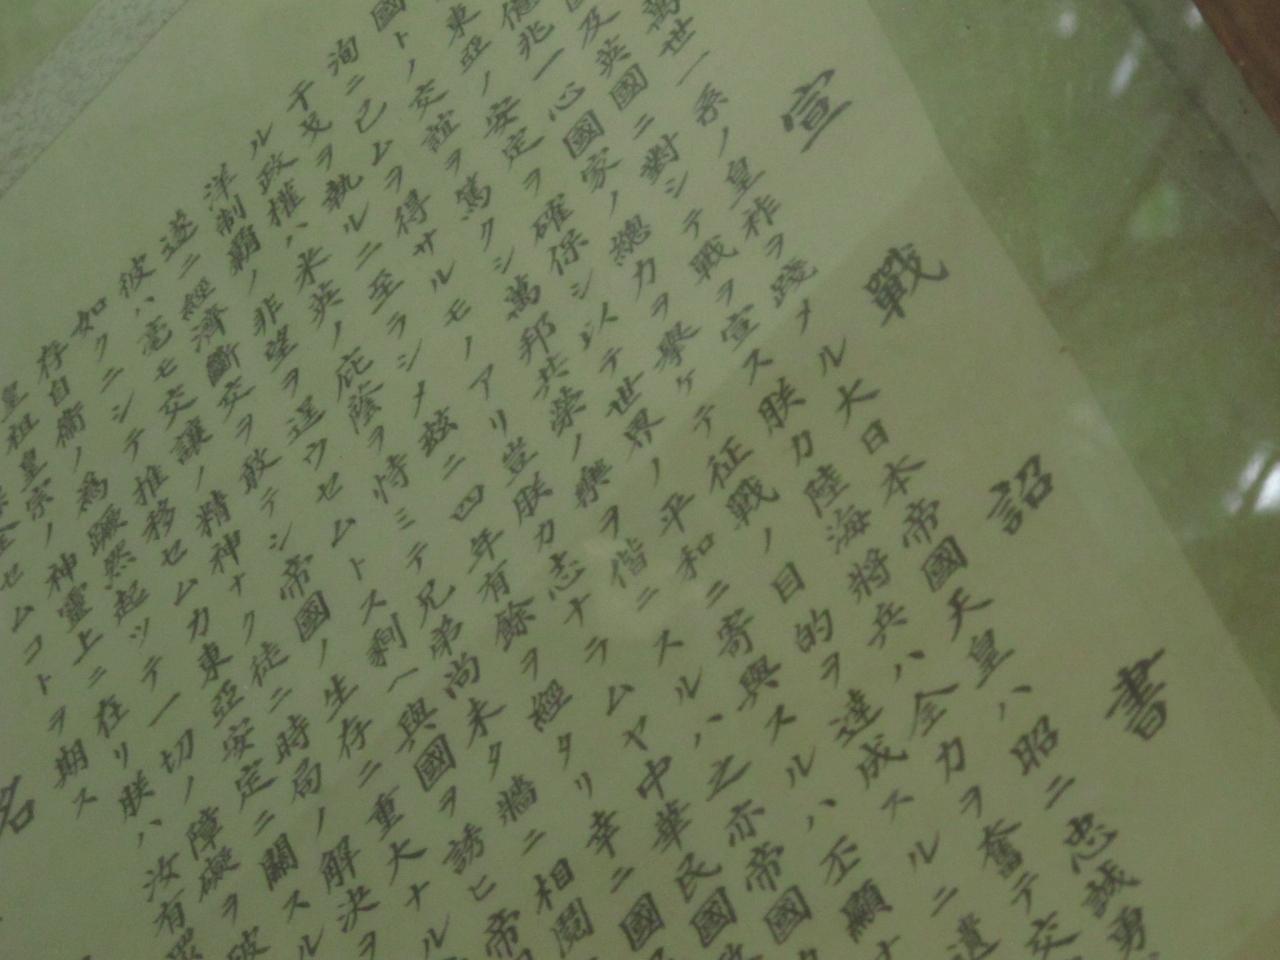 宣戰詔書
萬世一系ノ皇祚ヲ踐メル大日本帝國天皇ハ昭ニ忠誠勇
及英國ニ對シテ戰ヲ宣ス朕カ陸海將兵ハ全力ヲ奮テ交
億兆一心國家ノ總力ヲ擧ケテ征戰ノ目的ヲ達成スルニ遺
東亞ノ安定ヲ確保シ以テ世界ノ平和ニ寄與スルハ丕顯ナ
國トノ交誼ヲ篤クシ萬邦共榮ノ樂ヲ偕ニスルハ之亦帝國カ
洵ニ已ムヲ得サルモノアリ豈朕カ志ナラムヤ中華民國政
干戈ヲ執ルニ至ラシメ茲ニ四年有餘ヲ經タリ幸ニ國民
ル政權ハ米英ノ庇蔭ヲ恃ミテ兄弟尚未タ牆ニ相鬩
洋制覇ノ非望ヲ逞ウセムトス剩ヘ與國ヲ誘ヒ帝
遂ニ經濟斷交ヲ敢テシ帝國ノ生存ニ重大ナル
彼ハ毫モ交讓ノ精神ナク徒ニ時局ノ解決ヲ
如クニシテ推移セムカ東亞安定ニ關スル
存自衞ノ爲蹶然起ツテ一切ノ障礙ヲ破
皇祖皇宗ノ神靈上ニ在リ朕ハ汝有眾
全セムコトヲ期ス
名